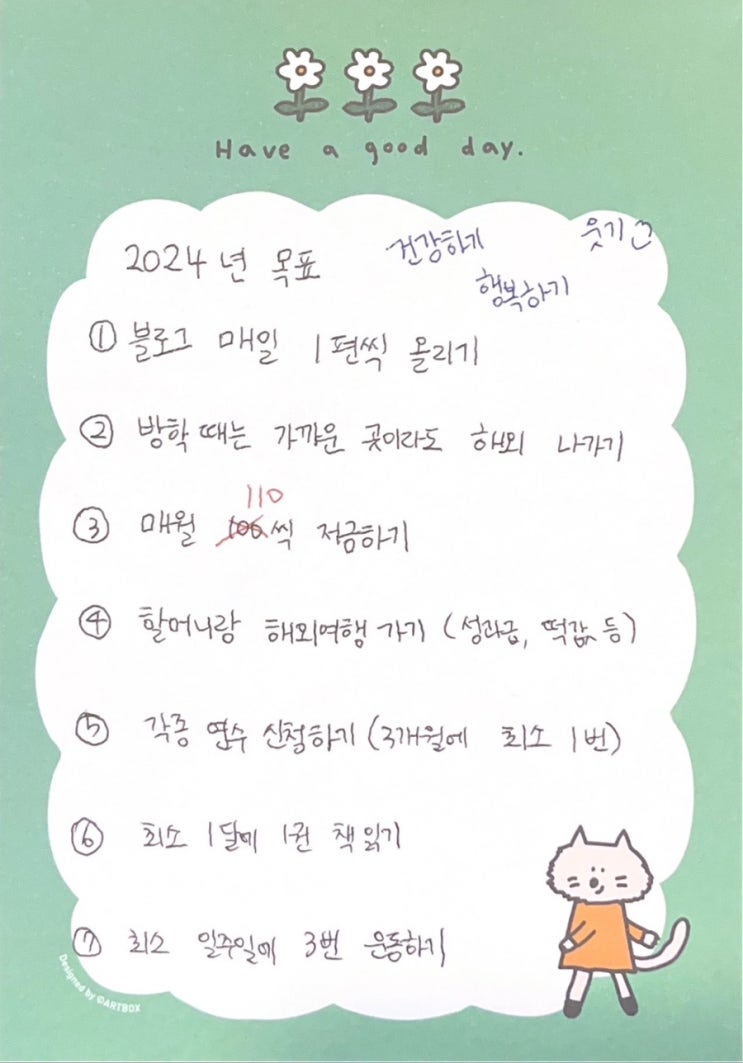 Have a good day.
2024년 목표 건강하기 웃기♡
행복하기
① 블로그 매일 1편씩 올리기
② 방학 때는 가까운 곳이라도 해외 나가기
110
③ 매월 100씩 저금하기
④ 할머니랑 해외여행 가기 (성과급, 떡값 등)
⑤ 각종 연수 신청하기 (3개월에 최소 1번)
⑥ 최소 1달에 1권 책 읽기
⑦ 최소 일주일에 3번 운동하기
Designed by ©ARTBOX